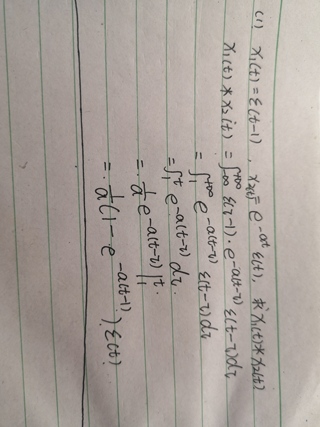 (1) x₁(t)=ε(t-1), x₂(t)=e^{-at}ε(t), 求x₁(t)*x₂(t)
x₁(t)*x₂(t)=∫_{-∞}^{+∞} ε(τ-1)·e^{-a(t-τ)} ε(t-τ)dτ
=∫_{1}^{+∞} e^{-a(t-τ)} ε(t-τ)dτ
=∫_{1}^{t} e^{-a(t-τ)} dτ.
=·\frac{1}{a} e^{-a(t-τ)}|_{1}^{t}.
=·\frac{1}{a}(1-e^{-a(t-1)})ε(t)